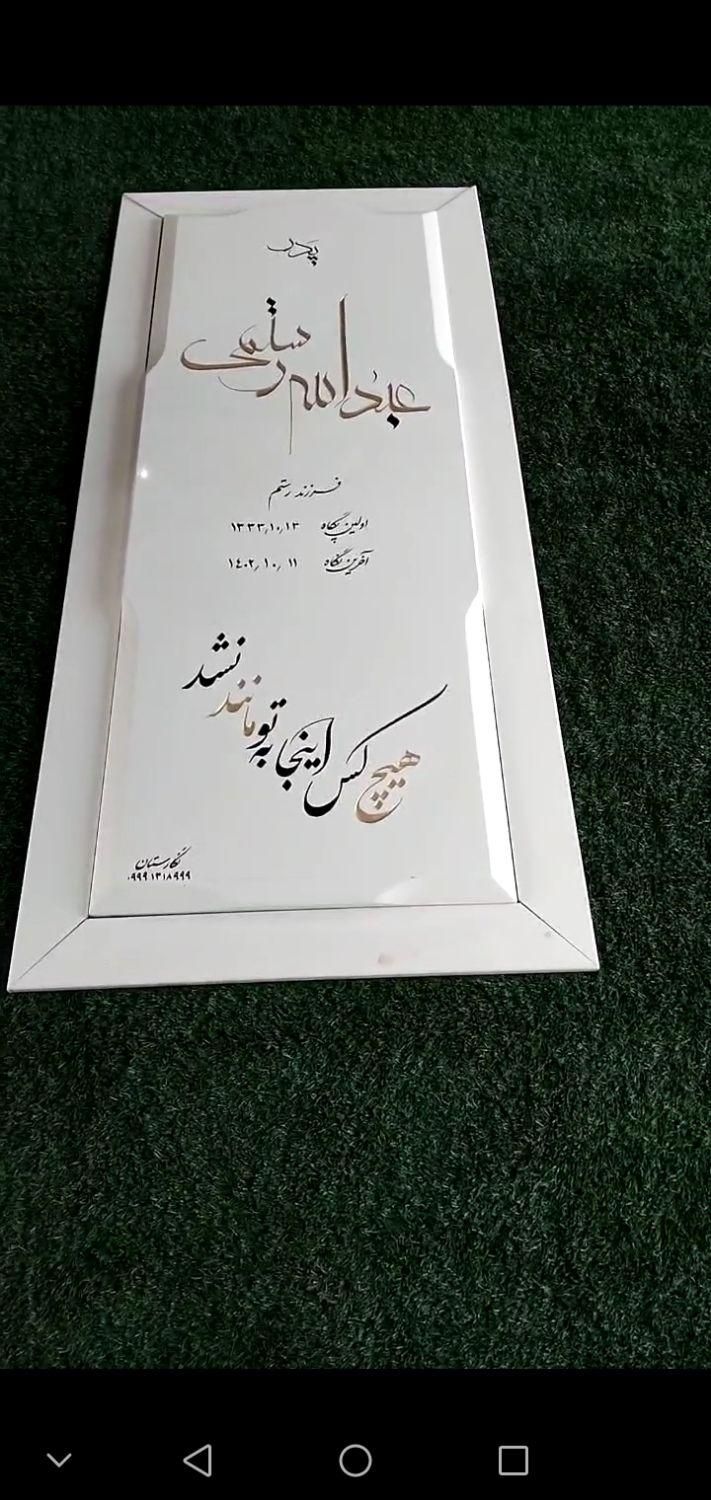 پدر
عبدالله رستمی
فرزند رستم
اولین پگاه ۱۳۳۳٫۱۰٫۱۳
آخرین نگاه ۱۴۰۲٫۱۰٫۱۱
هیچ کس اینجا به تو مانند نشد
نگارستان
۰۹۹۹۱۳۱۸۹۹۹